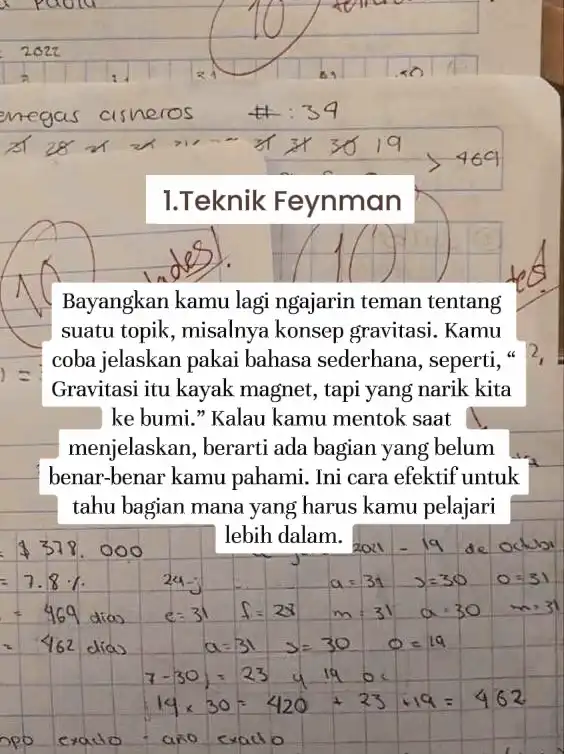 2022
cisneros #: 39
28 31 30 19
> 469
1.Teknik Feynman
10
10
Bayangkan kamu lagi ngajarin teman tentang
suatu topik, misalnya konsep gravitasi. Kamu
coba jelaskan pakai bahasa sederhana, seperti, “
Gravitasi itu kayak magnet, tapi yang narik kita
ke bumi.” Kalau kamu mentok saat
menjelaskan, berarti ada bagian yang belum
benar-benar kamu pahami. Ini cara efektif untuk
tahu bagian mana yang harus kamu pelajari
lebih dalam.
$ 378. 000 2021 - 19 de
= 7.8 %. a=31 s=30 o=31
= 469 días e=31 f=28 m=31 a=30 m=31
= 462 días a=31 s=30 o=19
7-30j = 23 y 19
14 x 30 = 420 + 23 + 19 = 462
exacto - año exacto